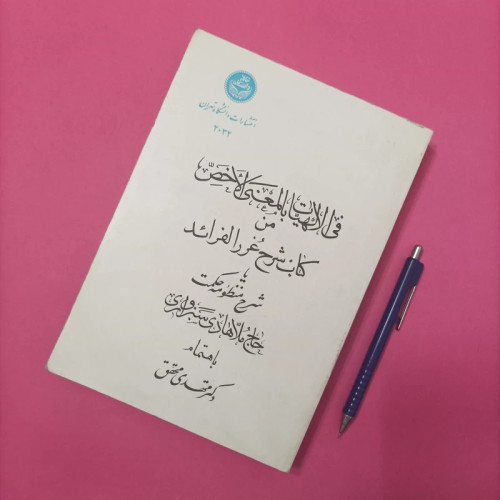 انتشارات دانشگاه تهران
۲۰۳۲
فی الالهیات بالمعنی الاخصّ
من
کتاب شرح غُرر الفرائد
یا
شرح منظومه حکمت
حاج ملّا هادی سبزواری
باهتمام
دکتر مهدی محقق